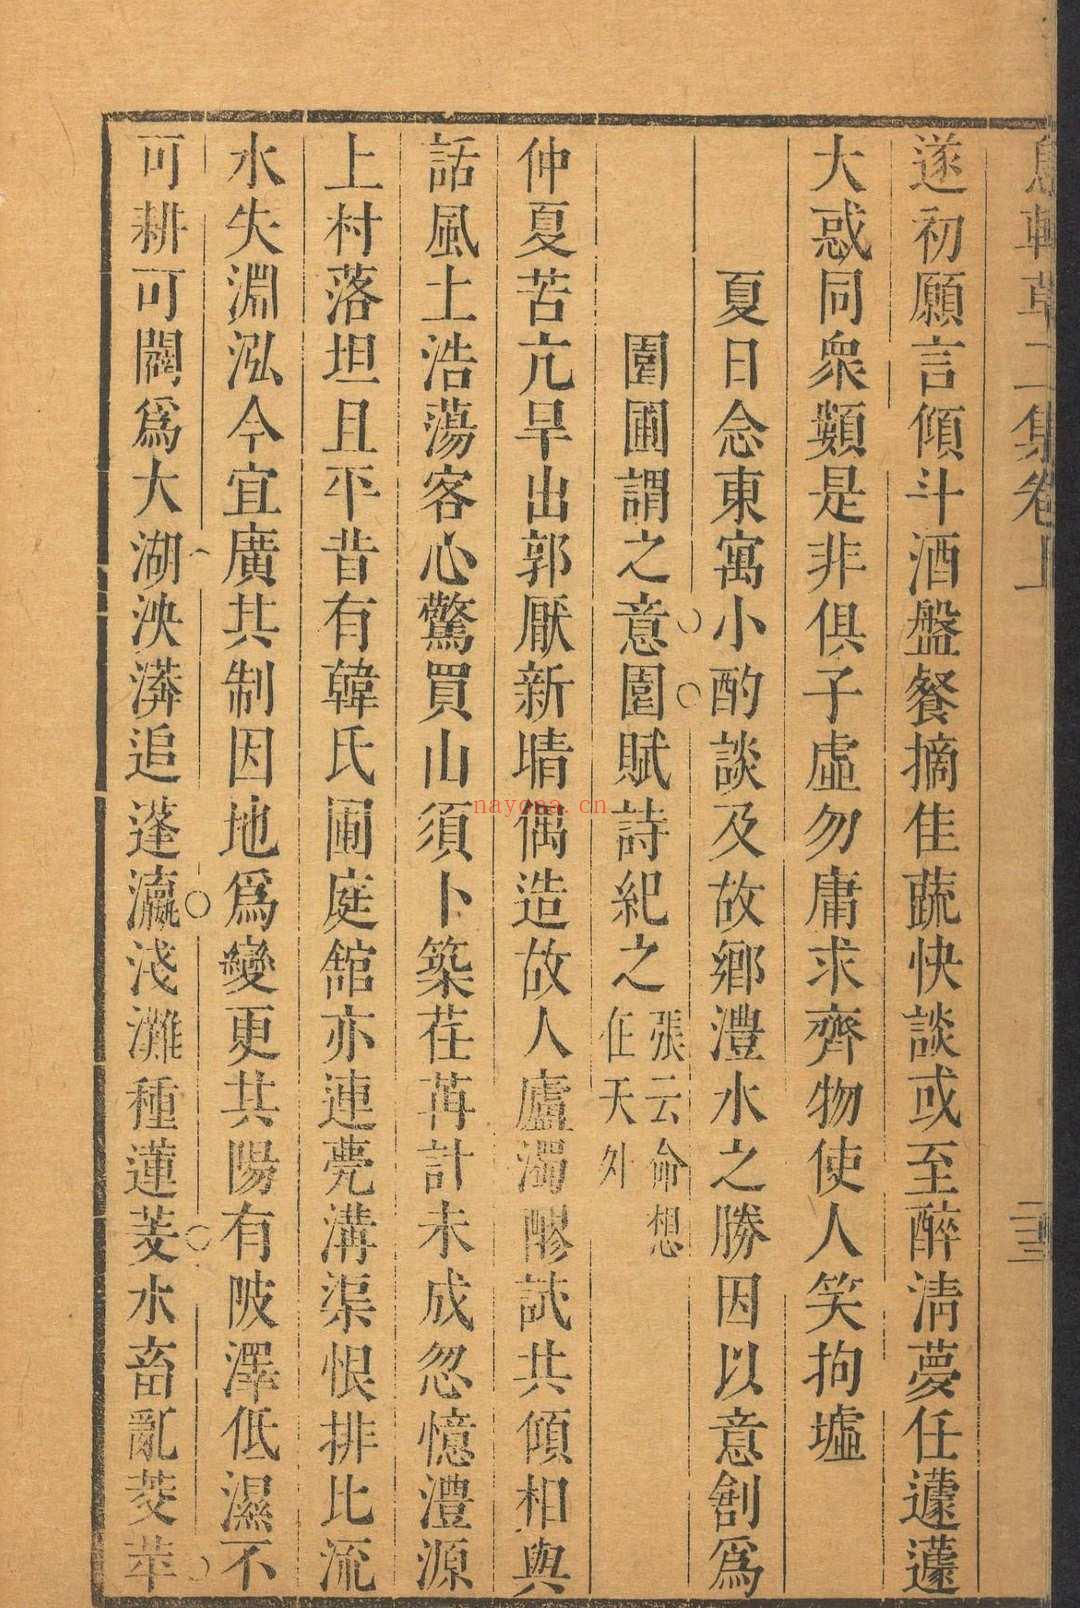 遂初願言傾斗酒盤餐摘佳蔬快談或至醉淸夢任蘧蘧
大惑同衆類是非俱子虛勿庸求齊物使人笑拘墟
夏日念東寓小酌談及故鄉澧水之勝因以意創爲
園圃謂之意園賦詩紀之
張云命想
在天外
仲夏苦亢旱出郭厭新晴偶造故人廬濁醪試共傾相與
話風土浩蕩客心驚買山須卜築荏苒計未成忽憶澧源
上村落坦且平昔有韓氏圃庭舘亦連甍溝渠恨排比流
水失淵泓今宜廣其制因地爲變更其陽有陂澤低濕不
可耕可闊爲大湖泱漭追蓬瀛淺灘種蓮芰水畜亂菱苹
二集卷上
nayona.cn